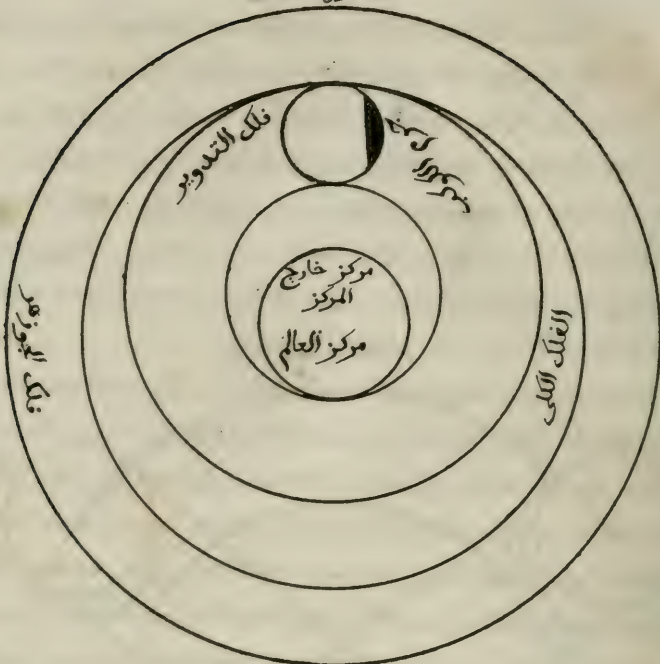 فلك التدوير
مركز خارج
المركز
مركز العالم
الفلك الكلى
فلك الجوزهر